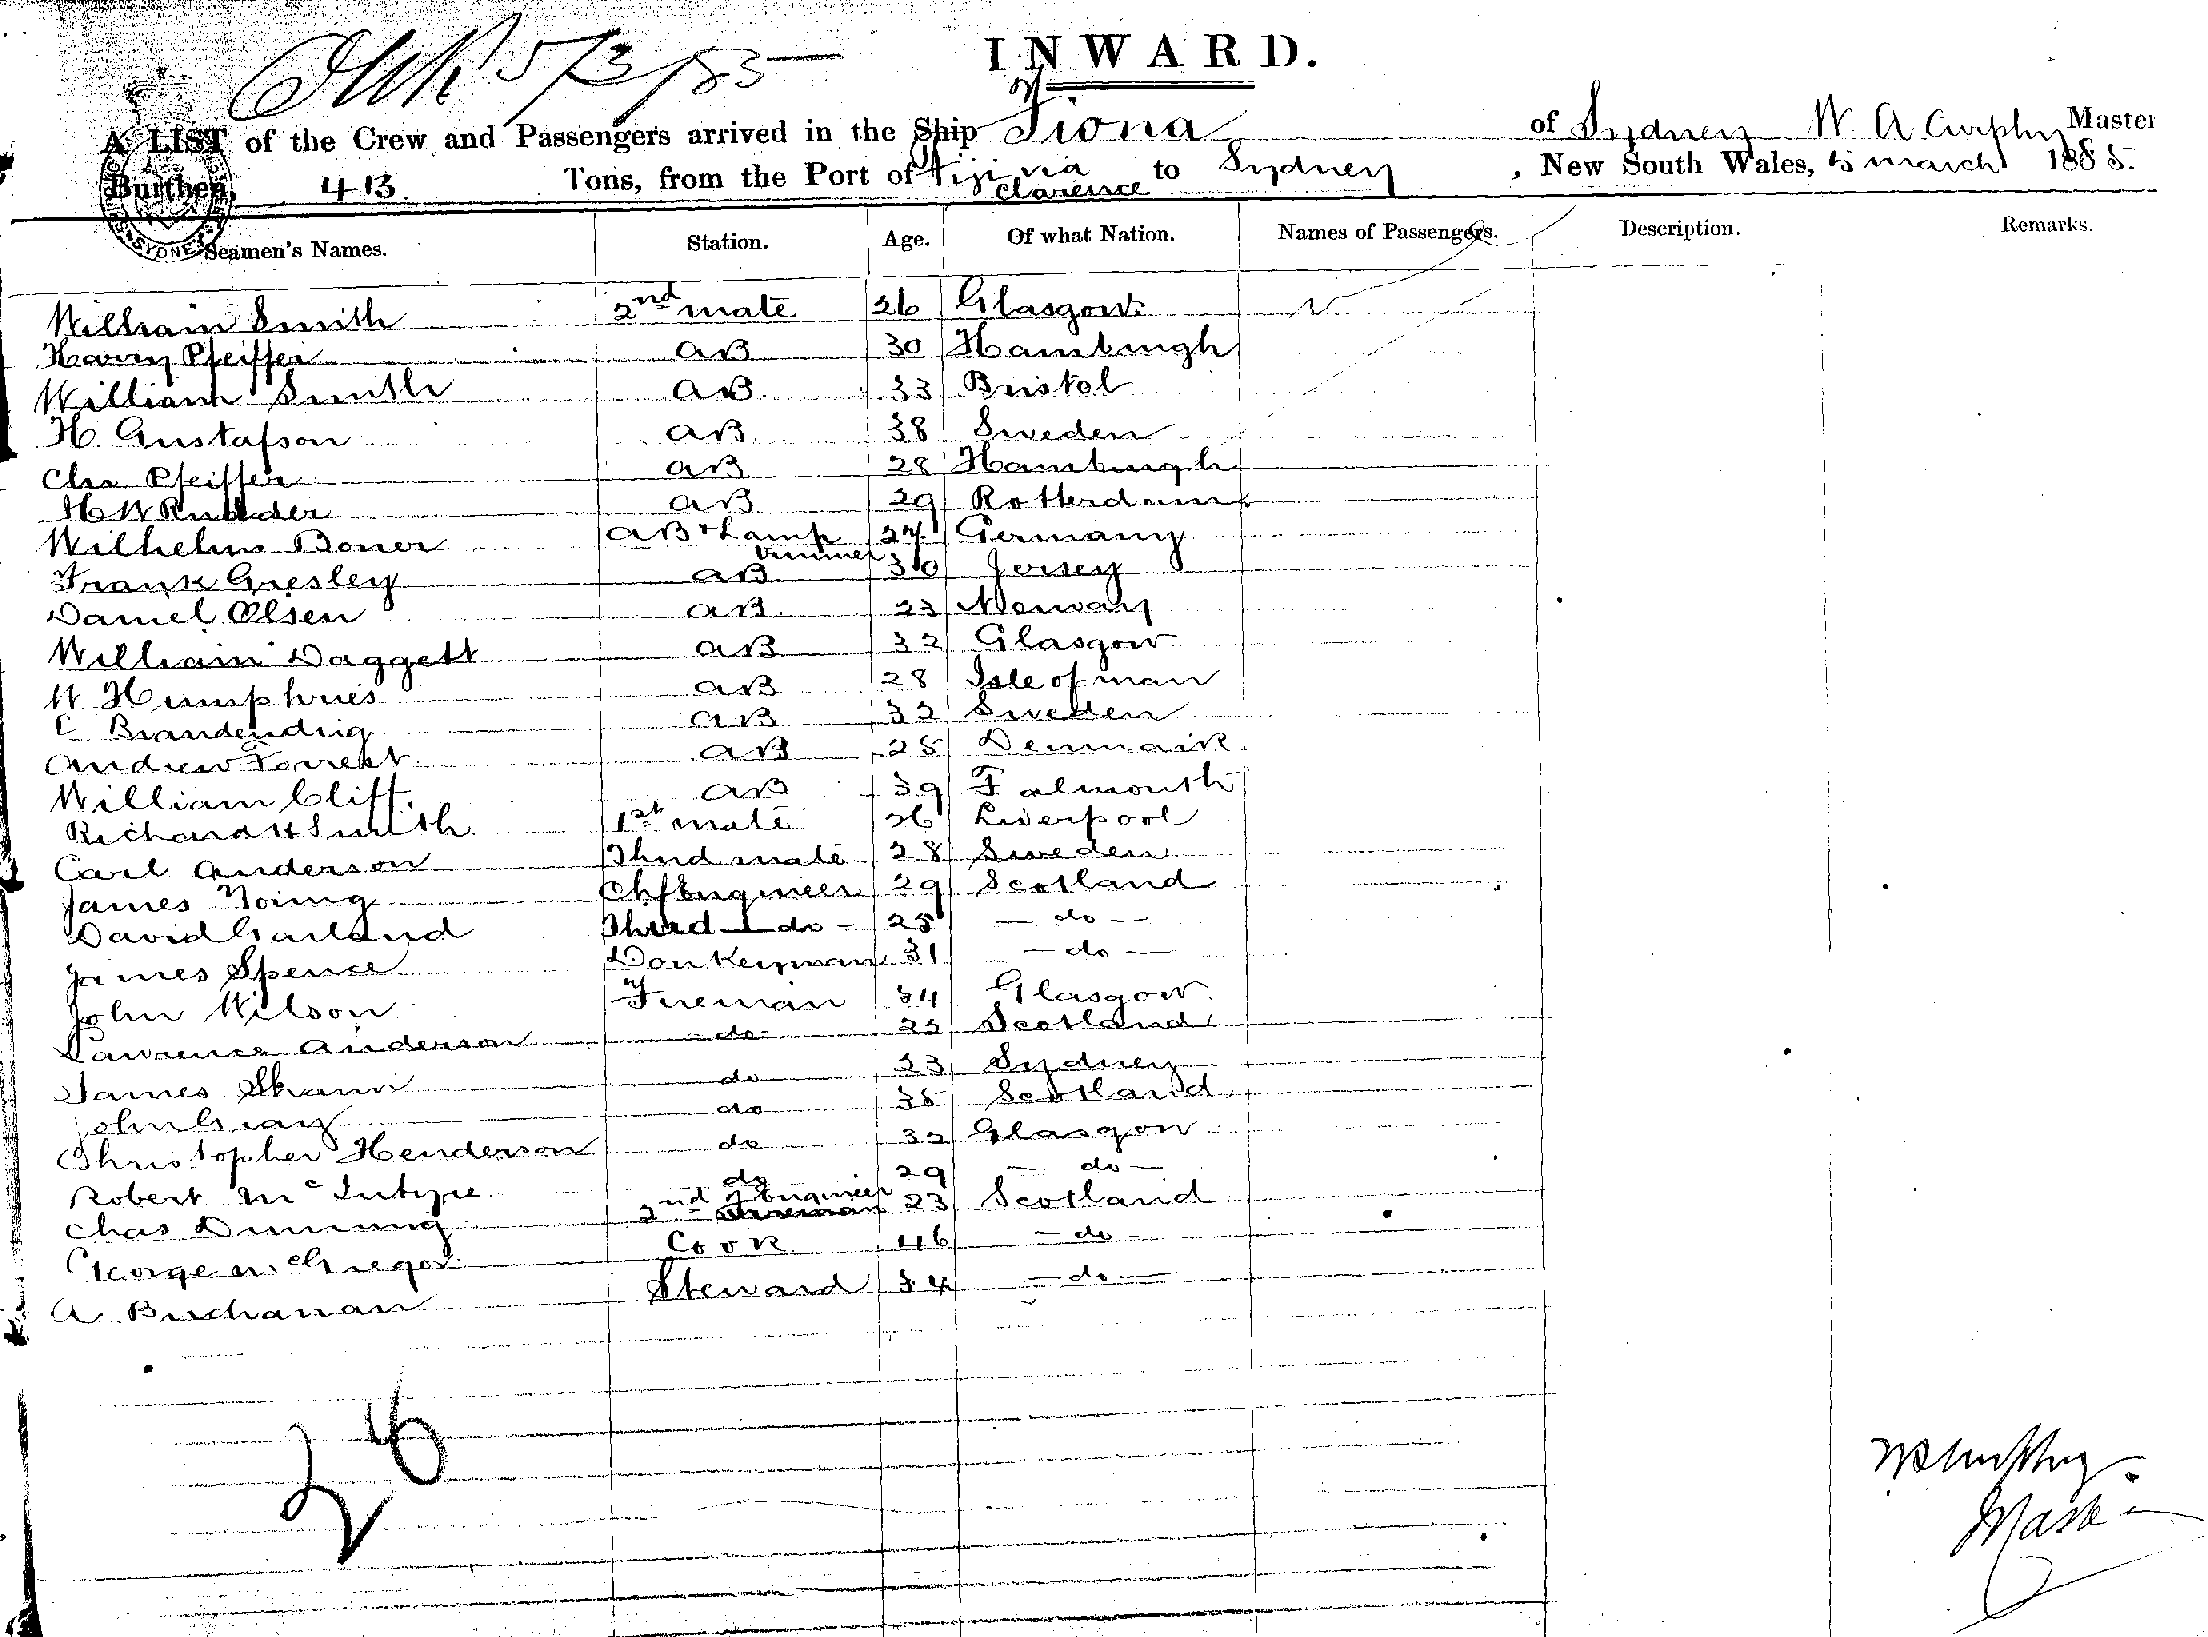 INWARD.
5/3/85
A LIST of the Crew and Passengers arrived in the Ship Fiona of Sydney W. A Curphey Master
Burthen, 413. Tons, from the Port of Fiji via Clarence to Sydney, New South Wales, 5 march 1885.
Seamen's Names. Station. Age. Of what Nation. Names of Passengers. Description. Remarks.
William Smith 2nd mate 26 Glasgow
Harry Pfeiffer AB 30 Hamburgh
William Smith AB 33 Bristol
H. Gustafson AB 38 Sweden
Chs Pfeiffer AB 28 Hamburgh
H W AB 29 Rotterdam
Wilhelm Boner AB & Lamp trimmer 27 Germany
Frank Gresley AB 30 Jersey
Daniel Olsen AB 23 Norway
William Daggett AB 32 Glasgow
W Humphries AB 28 Isle of man
C AB 32 Sweden
Andrew Forrest AB 28 Denmark
William Cliff. AB 39 Falmouth
Richard H Smith 1st mate 26 Liverpool
Carl Anderson Third mate 28 Sweden
James Young Chf Engineer 29 Scotland
David Garland Third - do - 25 - do -
James Spence Donkeyman 31 - do -
John Wilson Fireman 34 Glasgow
Lawrence Anderson do 23 Scotland
James Shann do 23 Sydney
John Gray do 38 Scotland
Christopher Henderson do 32 Glasgow
Robert McIntyre do 29 - do -
Chas Dunning 2nd Engineer 23 Scotland
George McGregor Cook 46 - do -
A Buchanan Steward 34 - do -
26
Master